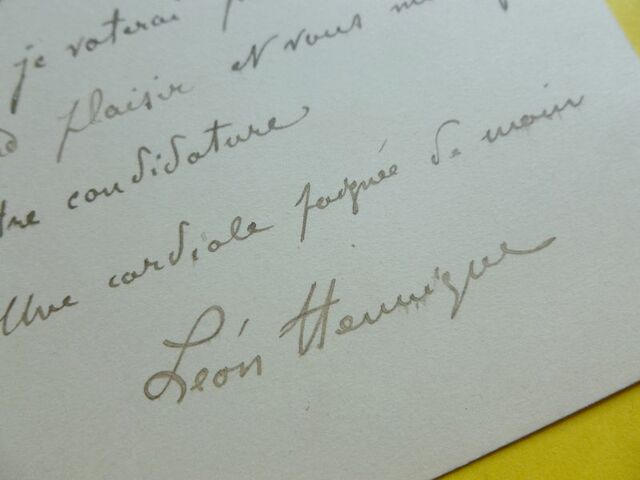 je voterai
plaisir et vous
candidature
Une cordiale poignée de main
Léon Hennique